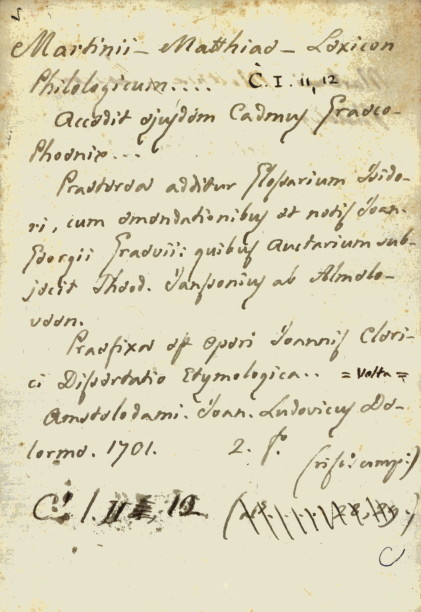 Martinii - Matthiae - Lexicon
Philologicum.... C. I. 11, 12
Accedit ejusdem Cadmus Graeco-
Phoenix...
Praeterea additur Glossarium Isido-
ri, cum emendationibus et notis Joan.
Georgii Graevii: quibus Auctarium sub-
jecit Theod. Janssonius ab Almelo-
veen.
Praefixa est operi Joannis Cleri-
ci Dissertatio Etymologica.. = Volta =
Amstelodami. Joan. Ludovicus De-
lorme. 1701. 2. f.
(rist: camp:)
C. I. 12